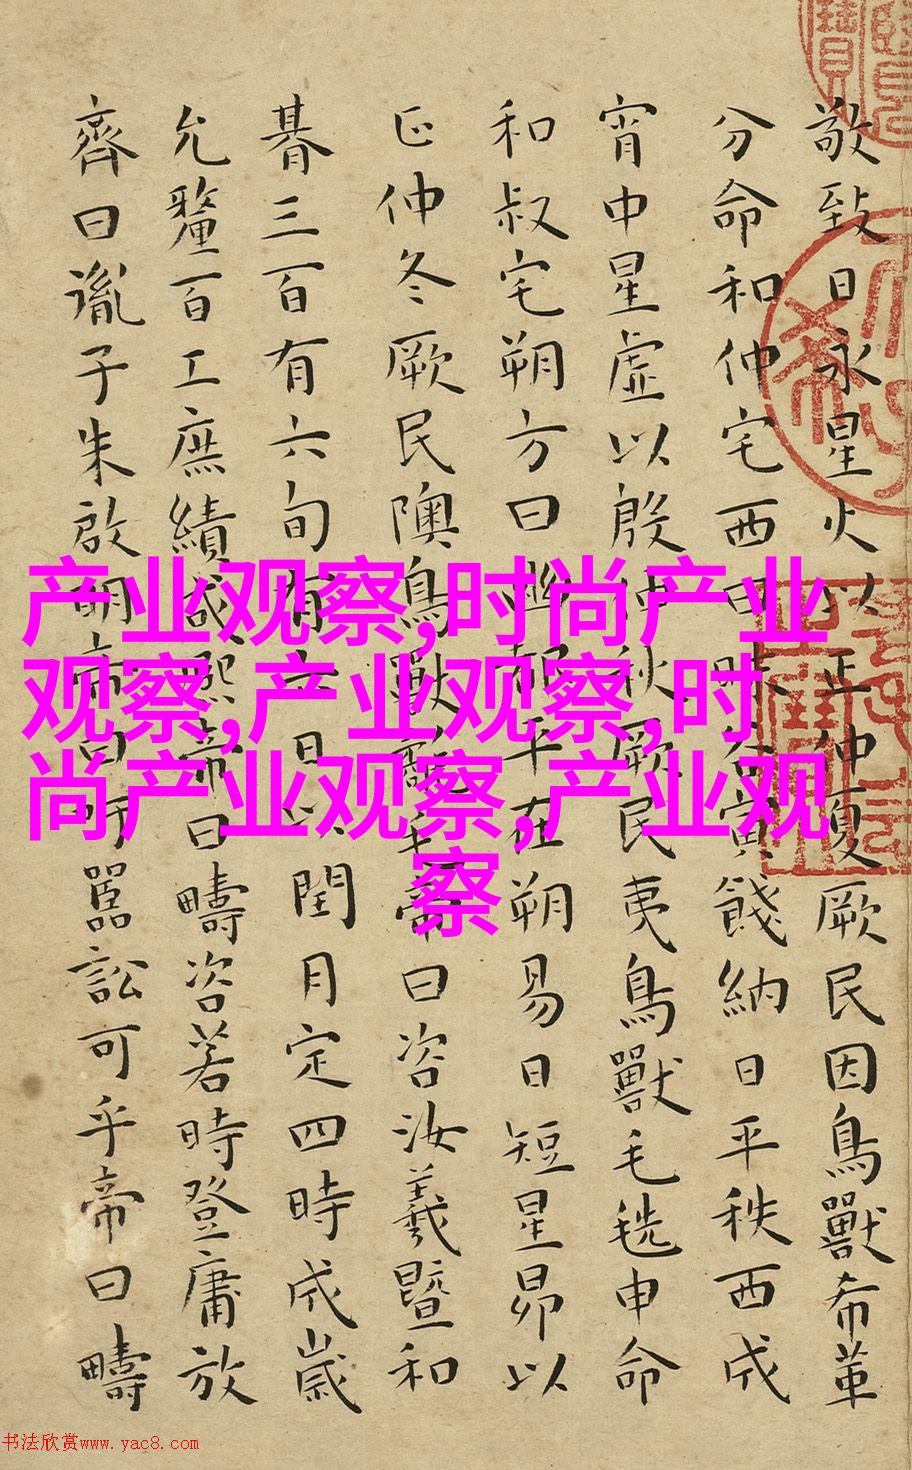 敬致日永星火以正仲夏厥民因鳥獸希革
分命和仲宅西曰昧谷寅餞納日平秩西成
宵中星虛以殷仲秋厥民夷鳥獸毛毨申命
和叔宅朔方曰幽都平在朔易日短星昴以
正仲冬厥民隩鳥獸氄毛帝曰咨汝羲暨和
朞三百有六旬有六日以閏月定四時成歲
允釐百工庶績咸熙帝曰疇咨若時登庸放
齊曰胤子朱啟明帝曰吁嚚訟可乎帝曰疇
产业观察,时尚产业
观察,产业观察,时
尚产业观察,产业观
察
书法欣赏www.yac8.com